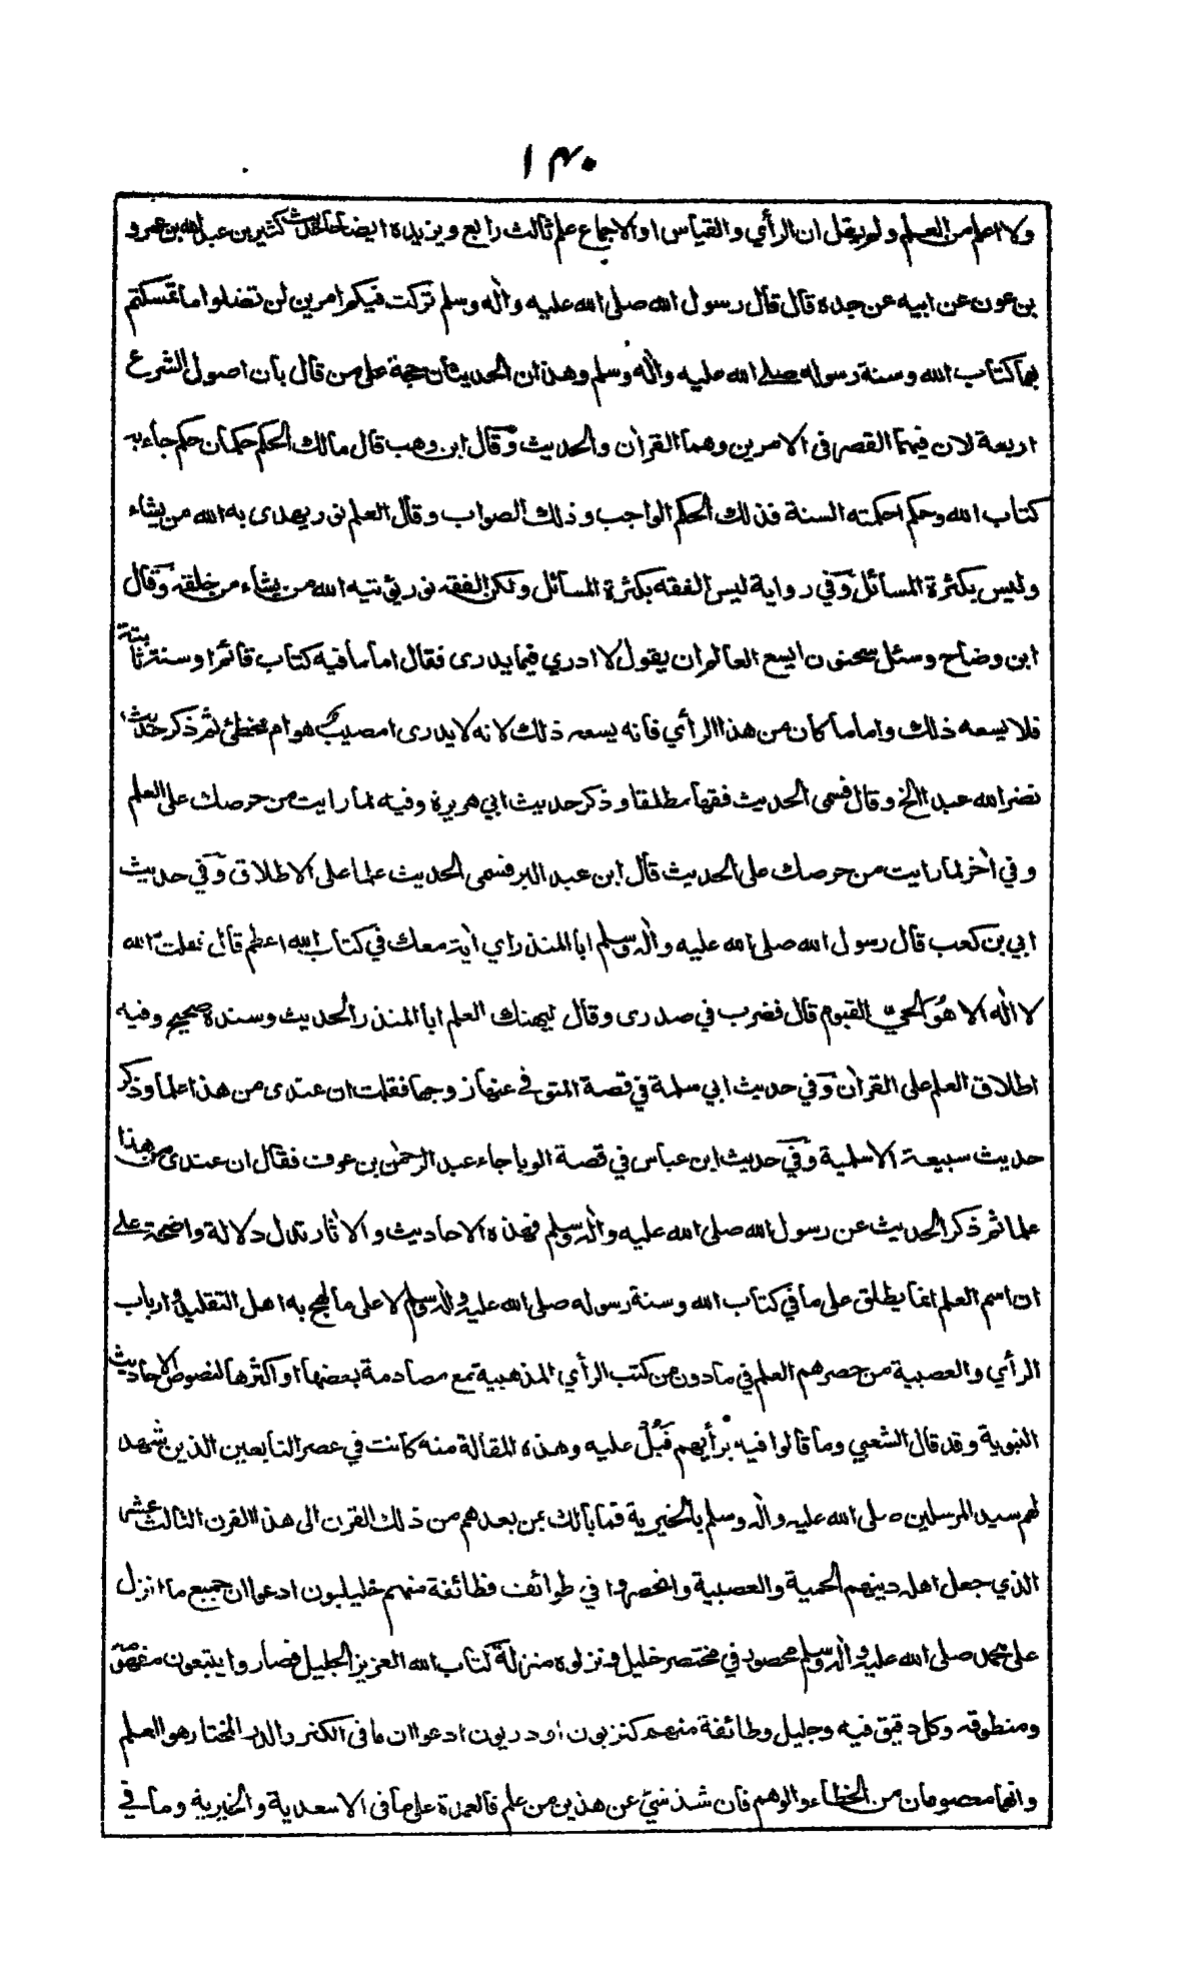 ١٣٠
ولا اعلم من العلم ولم يقل ان الرأي والقياس او الاجماع علم ثالث رابع ويزيده ايضاحا حديث كثير بن عبد الله بن عمرو
بن عون عن ابيه عن جده قال قال رسول الله صلى الله عليه واٰله وسلم تركت فيكم امرين لن تضلوا ما تمسكتم
بهما كتاب الله وسنة رسوله صلے الله عليه واٰله وسلم وهذان الحديثان حجة على من قال بان اصول الشرع
اربعة لان فيهما القصر فى الامرين وهما القراٰن والحديث وقال ابن وهب قال مالك الحكم حكمان حكم جاء به
كتاب الله وحكم احكمته السنة فذلك الحكم الواجب وذلك الصواب وقال العلم نور يهدى به الله من يشاء
وليس بكثرة المسائل وفي رواية ليس الفقه بكثرة المسائل ولكن الفقه نور يؤتيه الله من يشاء من خلقه وقال
ابن وضاح وسئل سحنون ايسع العالم ان يقول لا ادري فيما يدرى فقال اما ما فيه كتاب قائم او سنة ثابتة
فلا يسعه ذلك واما ما كان من هذا الرأي فانه يسعه ذلك لانه لا يدرى امصيب هو ام مخطئ ثم ذكر حديث
نضر الله عبدا الخ وقال فسمى الحديث فقها مطلقا وذكر حديث ابي هريرة وفيه لما رايت من حرصك على العلم
وفي اٰخر لما رايت من حرصك على الحديث قال ابن عبد البر فسمى الحديث علما على الاطلاق وفي حديث
ابي بن كعب قال رسول الله صلى الله عليه واٰله وسلم ابا المنذر اي اٰية معك في كتاب الله اعظم قال فقلت الله
لا اله الا هو الحي القيوم قال فضرب في صدرى وقال ليهنك العلم ابا المنذر الحديث وسنده صحيح وفيه
اطلاق العلم على القراٰن وفي حديث ابي سلمة في قصة المتوفى عنها زوجها فقلت ان عندى من هذا علما وذكر
حديث سبيعة الاسلمية وفي حديث ابن عباس في قصة الوبا جاء عبد الرحمٰن بن عوف فقال ان عندى من هذا
علما ثم ذكر الحديث عن رسول الله صلى الله عليه واٰله وسلم فهذه الاحاديث والاٰثار تدل دلالة واضحة على
ان اسم العلم انما يطلق على ما في كتاب الله وسنة رسوله صلى الله عليه واٰله وسلم لا على ما لهج به اهل التقليد وارباب
الرأي والعصبية من حصرهم العلم في ما دون من كتب الرأي المذهبية مع مصادمة بعضها او اكثرها لنصوص الاحاديث
النبوية وقد قال الشعبي وما قالوا فيه برأيهم فبل عليه وهذه المقالة منه كانت في عصر التابعين الذين شهد
لهم سيد المرسلين صلى الله عليه واٰله وسلم بالخيرية فما بالك بمن بعدهم من ذلك القرن الى هذا القرن الثالث عشر
الذي جعل اهله دينهم الحمية والعصبية وانحصروا في طوائف فطائفة منهم خليليون ادعوا ان جميع ما انزل
على محمد صلى الله عليه واٰله وسلم محصور في مختصر خليل ونزلوه منزلة كتاب الله العزيز الجليل فصاروا يتبعون مفهومه
ومنطوقه وكل دقيق فيه وجليل وطائفة منهم كنزيون او دريون ادعوا ان ما فى الكنز والدر المختار هو العلم
وانهما معصومان من الخطاء والوهم فان شذ شئ عن هذين من علم فالعمدة على ما فى الاسعدية والخيرية وما في